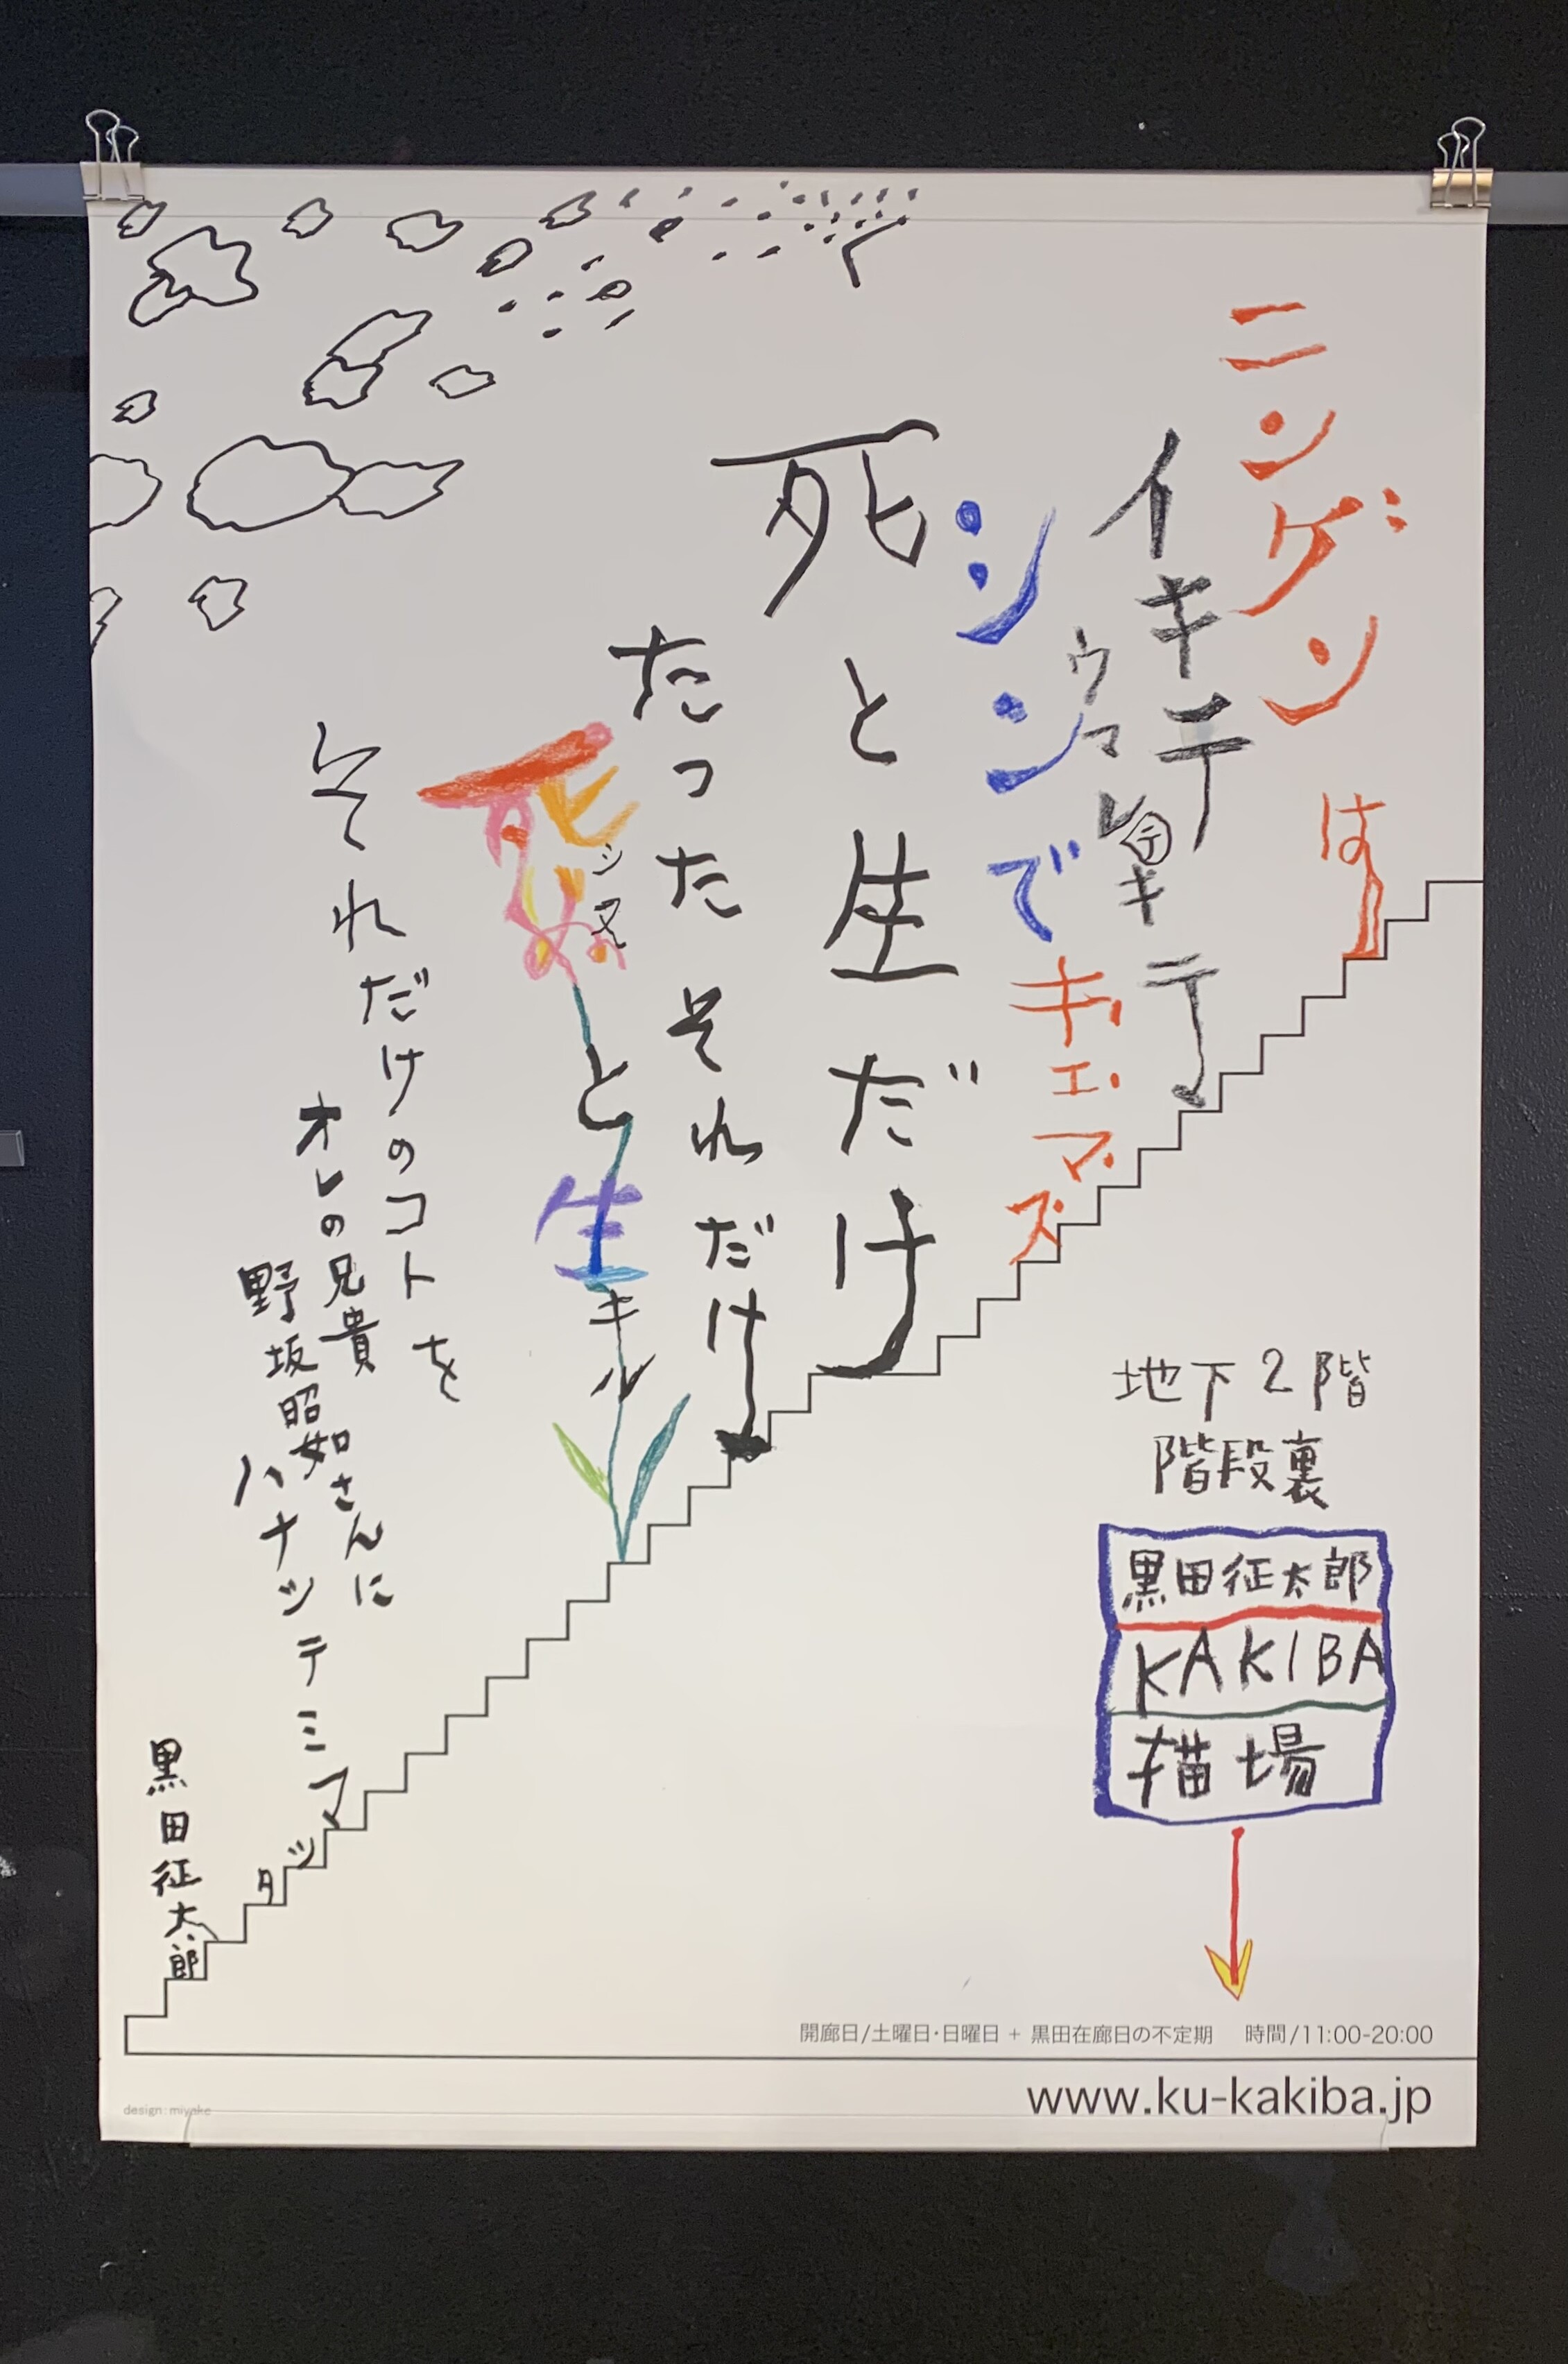 ニンゲンは
イキテ
ウマレテキテ
シンでキエマス
死と生だけ
たったそれだけ
死ぬと生キル
シヌ
それだけのコトを
オレの兄貴
野坂昭如さんに
ハナシテミマシタ
黒田征太郎
地下2階
階段裏
黒田征太郎
KAKIBA
描場
開廊日/土曜日・日曜日 + 黒田在廊日の不定期 時間/11:00-20:00
www.ku-kakiba.jp
design:miyake